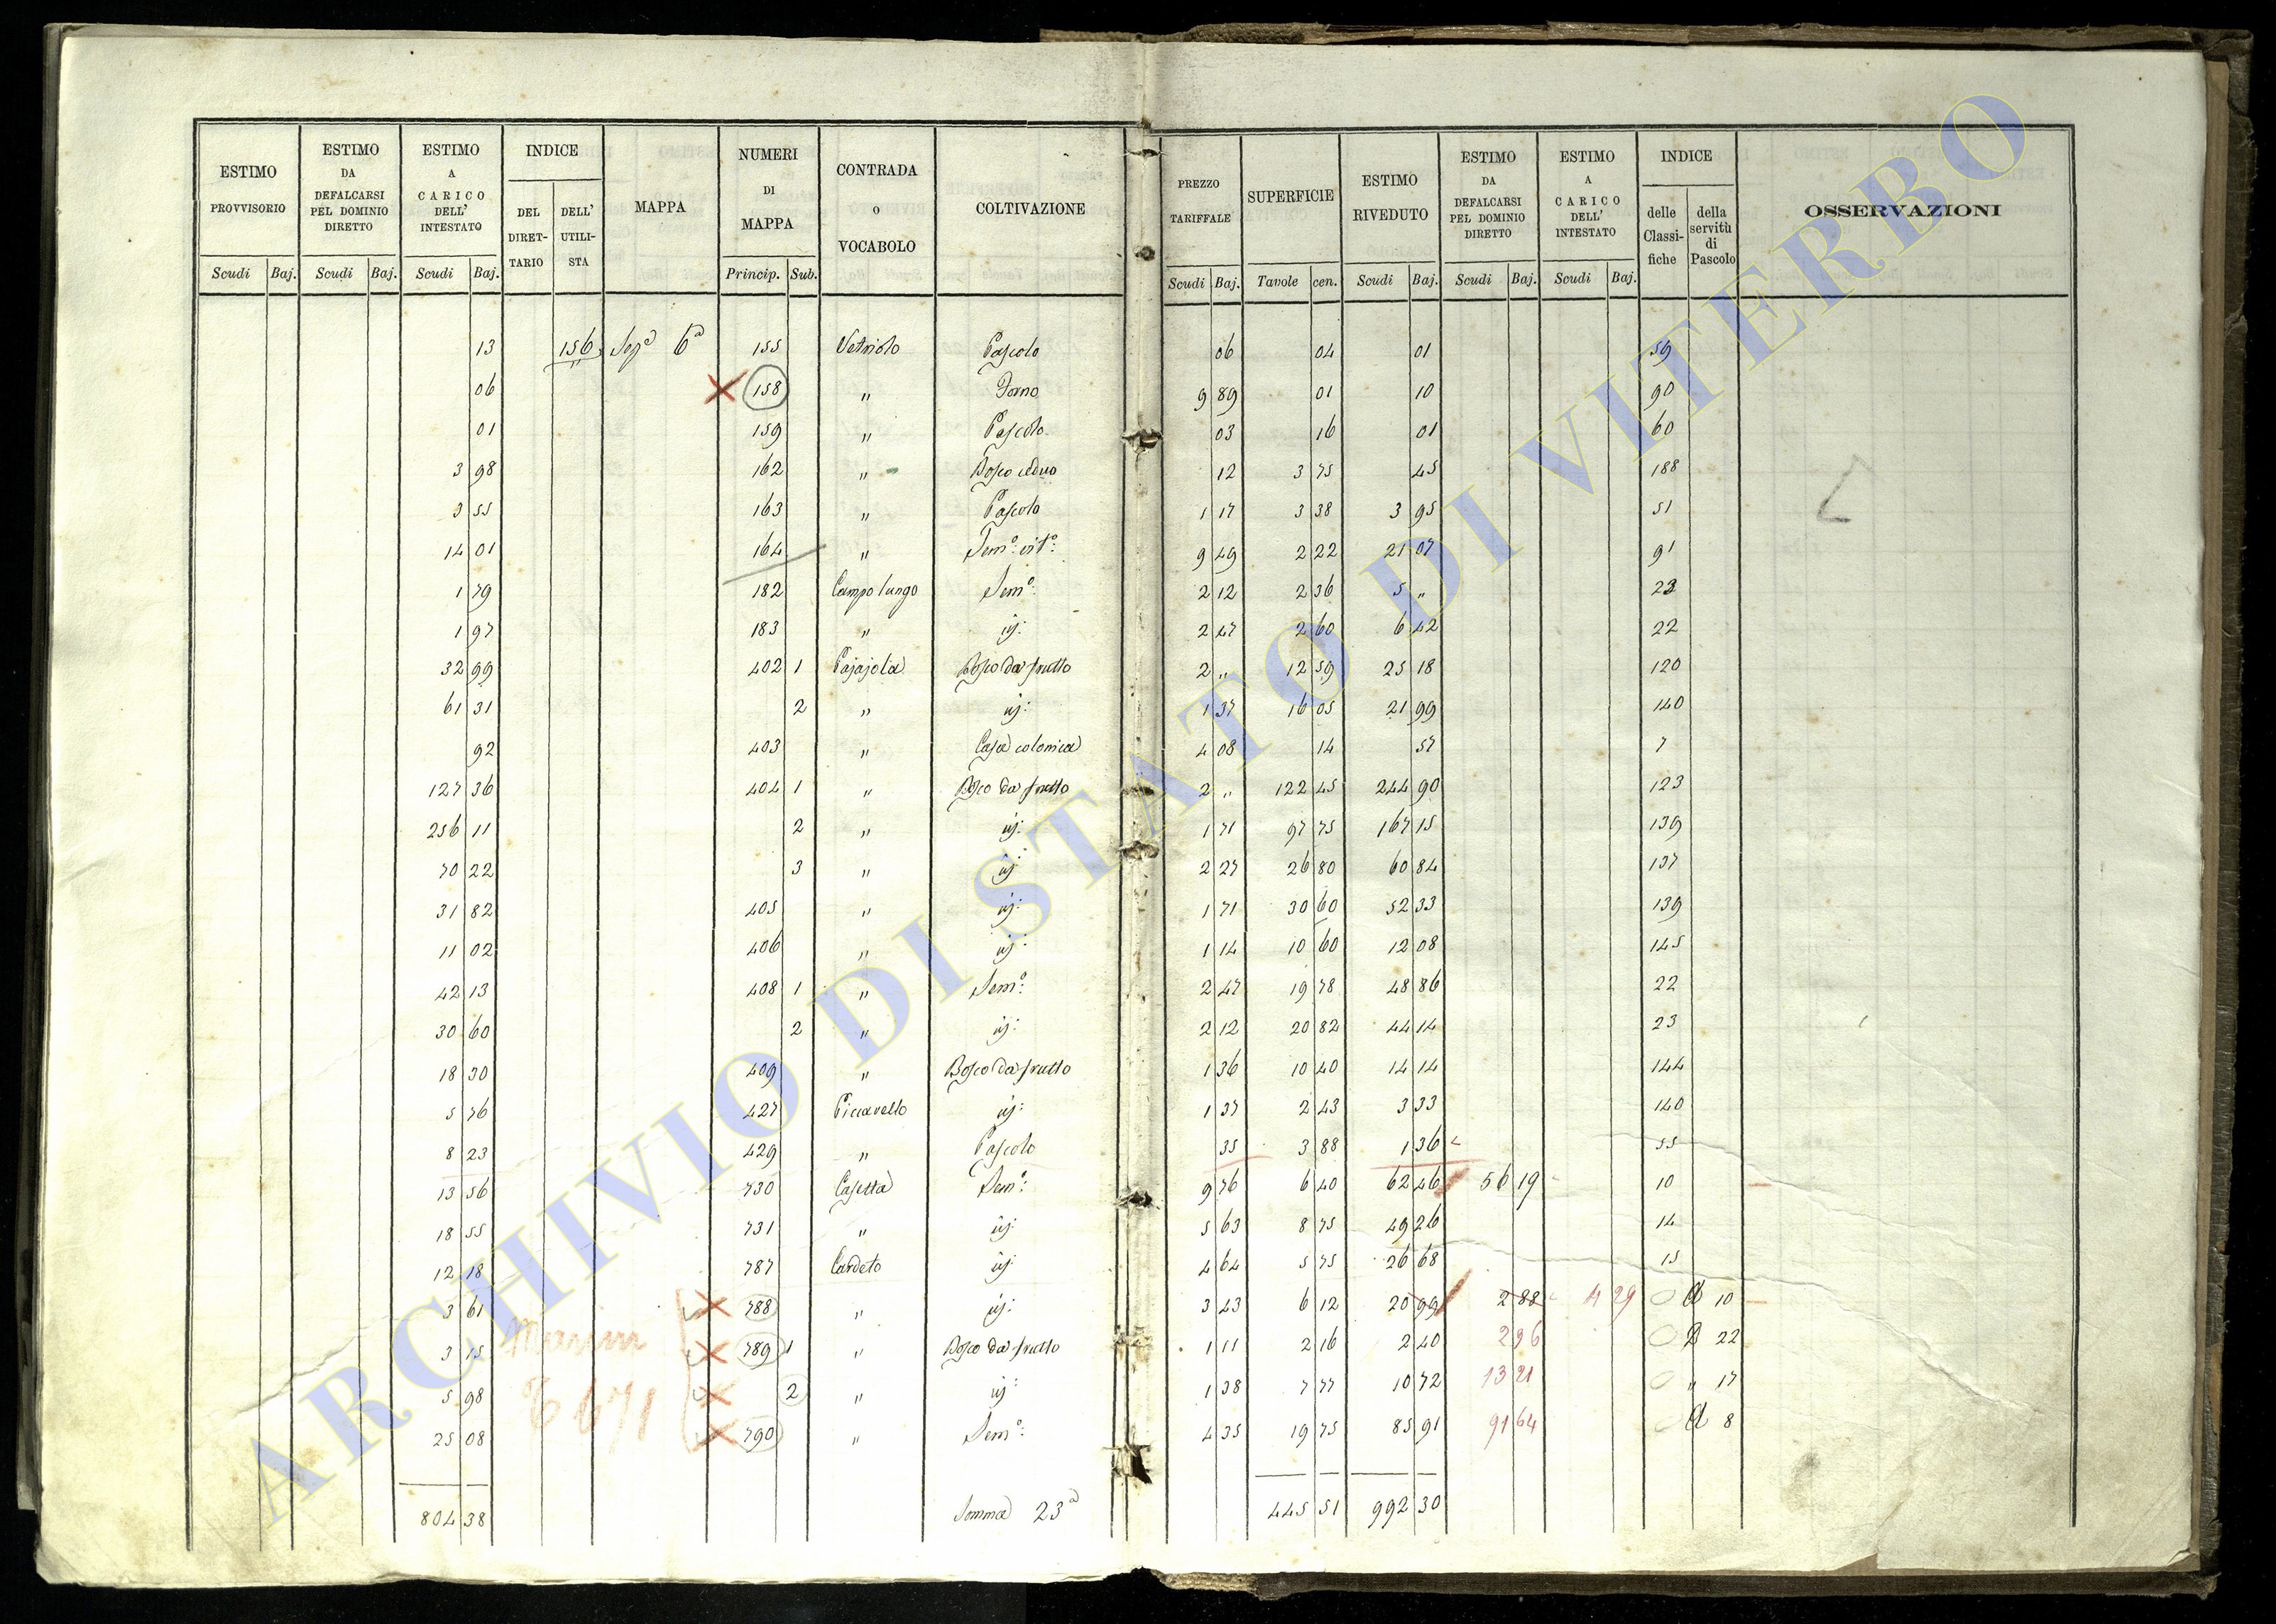 ESTIMO PROVVISORIO Scudi Baj.
ESTIMO DA DEFALCARSI PEL DOMINIO DIRETTO Scudi Baj.
ESTIMO A CARICO DELL' INTESTATO Scudi Baj.
INDICE DEL DIRETTARIO DELL' UTILISTA
MAPPA
NUMERI DI MAPPA Princip. Sub.
CONTRADA o VOCABOLO
COLTIVAZIONE
PREZZO TARIFFALE Scudi Baj.
SUPERFICIE Tavole cen.
ESTIMO RIVEDUTO Scudi Baj.
ESTIMO DA DEFALCARSI PEL DOMINIO DIRETTO Scudi Baj.
ESTIMO A CARICO DELL' INTESTATO Scudi Baj.
INDICE delle Classifiche della servitù di Pascolo
OSSERVAZIONI
13 156 Sez.e 6a 155 Vetriolo Pascolo 06 04 01 59
06 158 " Forno 9 89 01 10 90
01 159 " Pascolo 03 16 01 60
3 98 162 " Bosco ceduo 12 3 75 45 188
3 55 163 " Pascolo 1 17 3 38 3 95 51
14 01 164 " Semo: vito: 9 49 2 22 21 07 91
1 79 182 Campo lungo Semo: 2 12 2 36 5 " 23
1 97 183 " id: 2 47 2 60 6 42 22
32 99 402 1 Pajajola Bosco da frutto 2 " 12 59 25 18 120
61 31 2 " id: 1 37 16 05 21 99 140
92 403 " Casa colonica 4 08 14 57 7
127 36 404 1 " Bosco da frutto 2 " 122 45 244 90 123
256 11 2 " id: 1 71 97 75 167 15 139
70 22 3 " id: 2 27 26 80 60 84 137
31 82 405 " id: 1 71 30 60 52 33 139
11 02 406 " id: 1 14 10 60 12 08 145
42 13 408 1 " Semo: 2 47 19 78 48 86 22
30 60 2 " id: 2 12 20 82 44 14 23
18 30 409 " Bosco da frutto 1 36 10 40 14 14 144
5 76 427 Piccavello id: 1 37 2 43 3 33 140
8 23 429 " Pascolo 35 3 88 1 36 55
13 56 730 Casetta Semo: 9 76 6 40 62 46 56 19 10
18 55 731 " id: 5 63 8 75 49 26 14
12 18 787 Cardeto id: 4 64 5 75 26 68 15
3 61 788 " id: 3 43 6 12 20 99 2 88 4 29 A 10
3 15 789 1 " Bosco da frutto 1 11 2 16 2 40 2 96 B 22
5 98 2 " id: 1 38 7 77 10 72 13 21 " 17
25 08 790 " Semo: 4 35 19 75 85 91 91 64 A 8
804 38 Somma 23a 445 51 992 30
ARCHIVIO DI STATO DI VITERBO